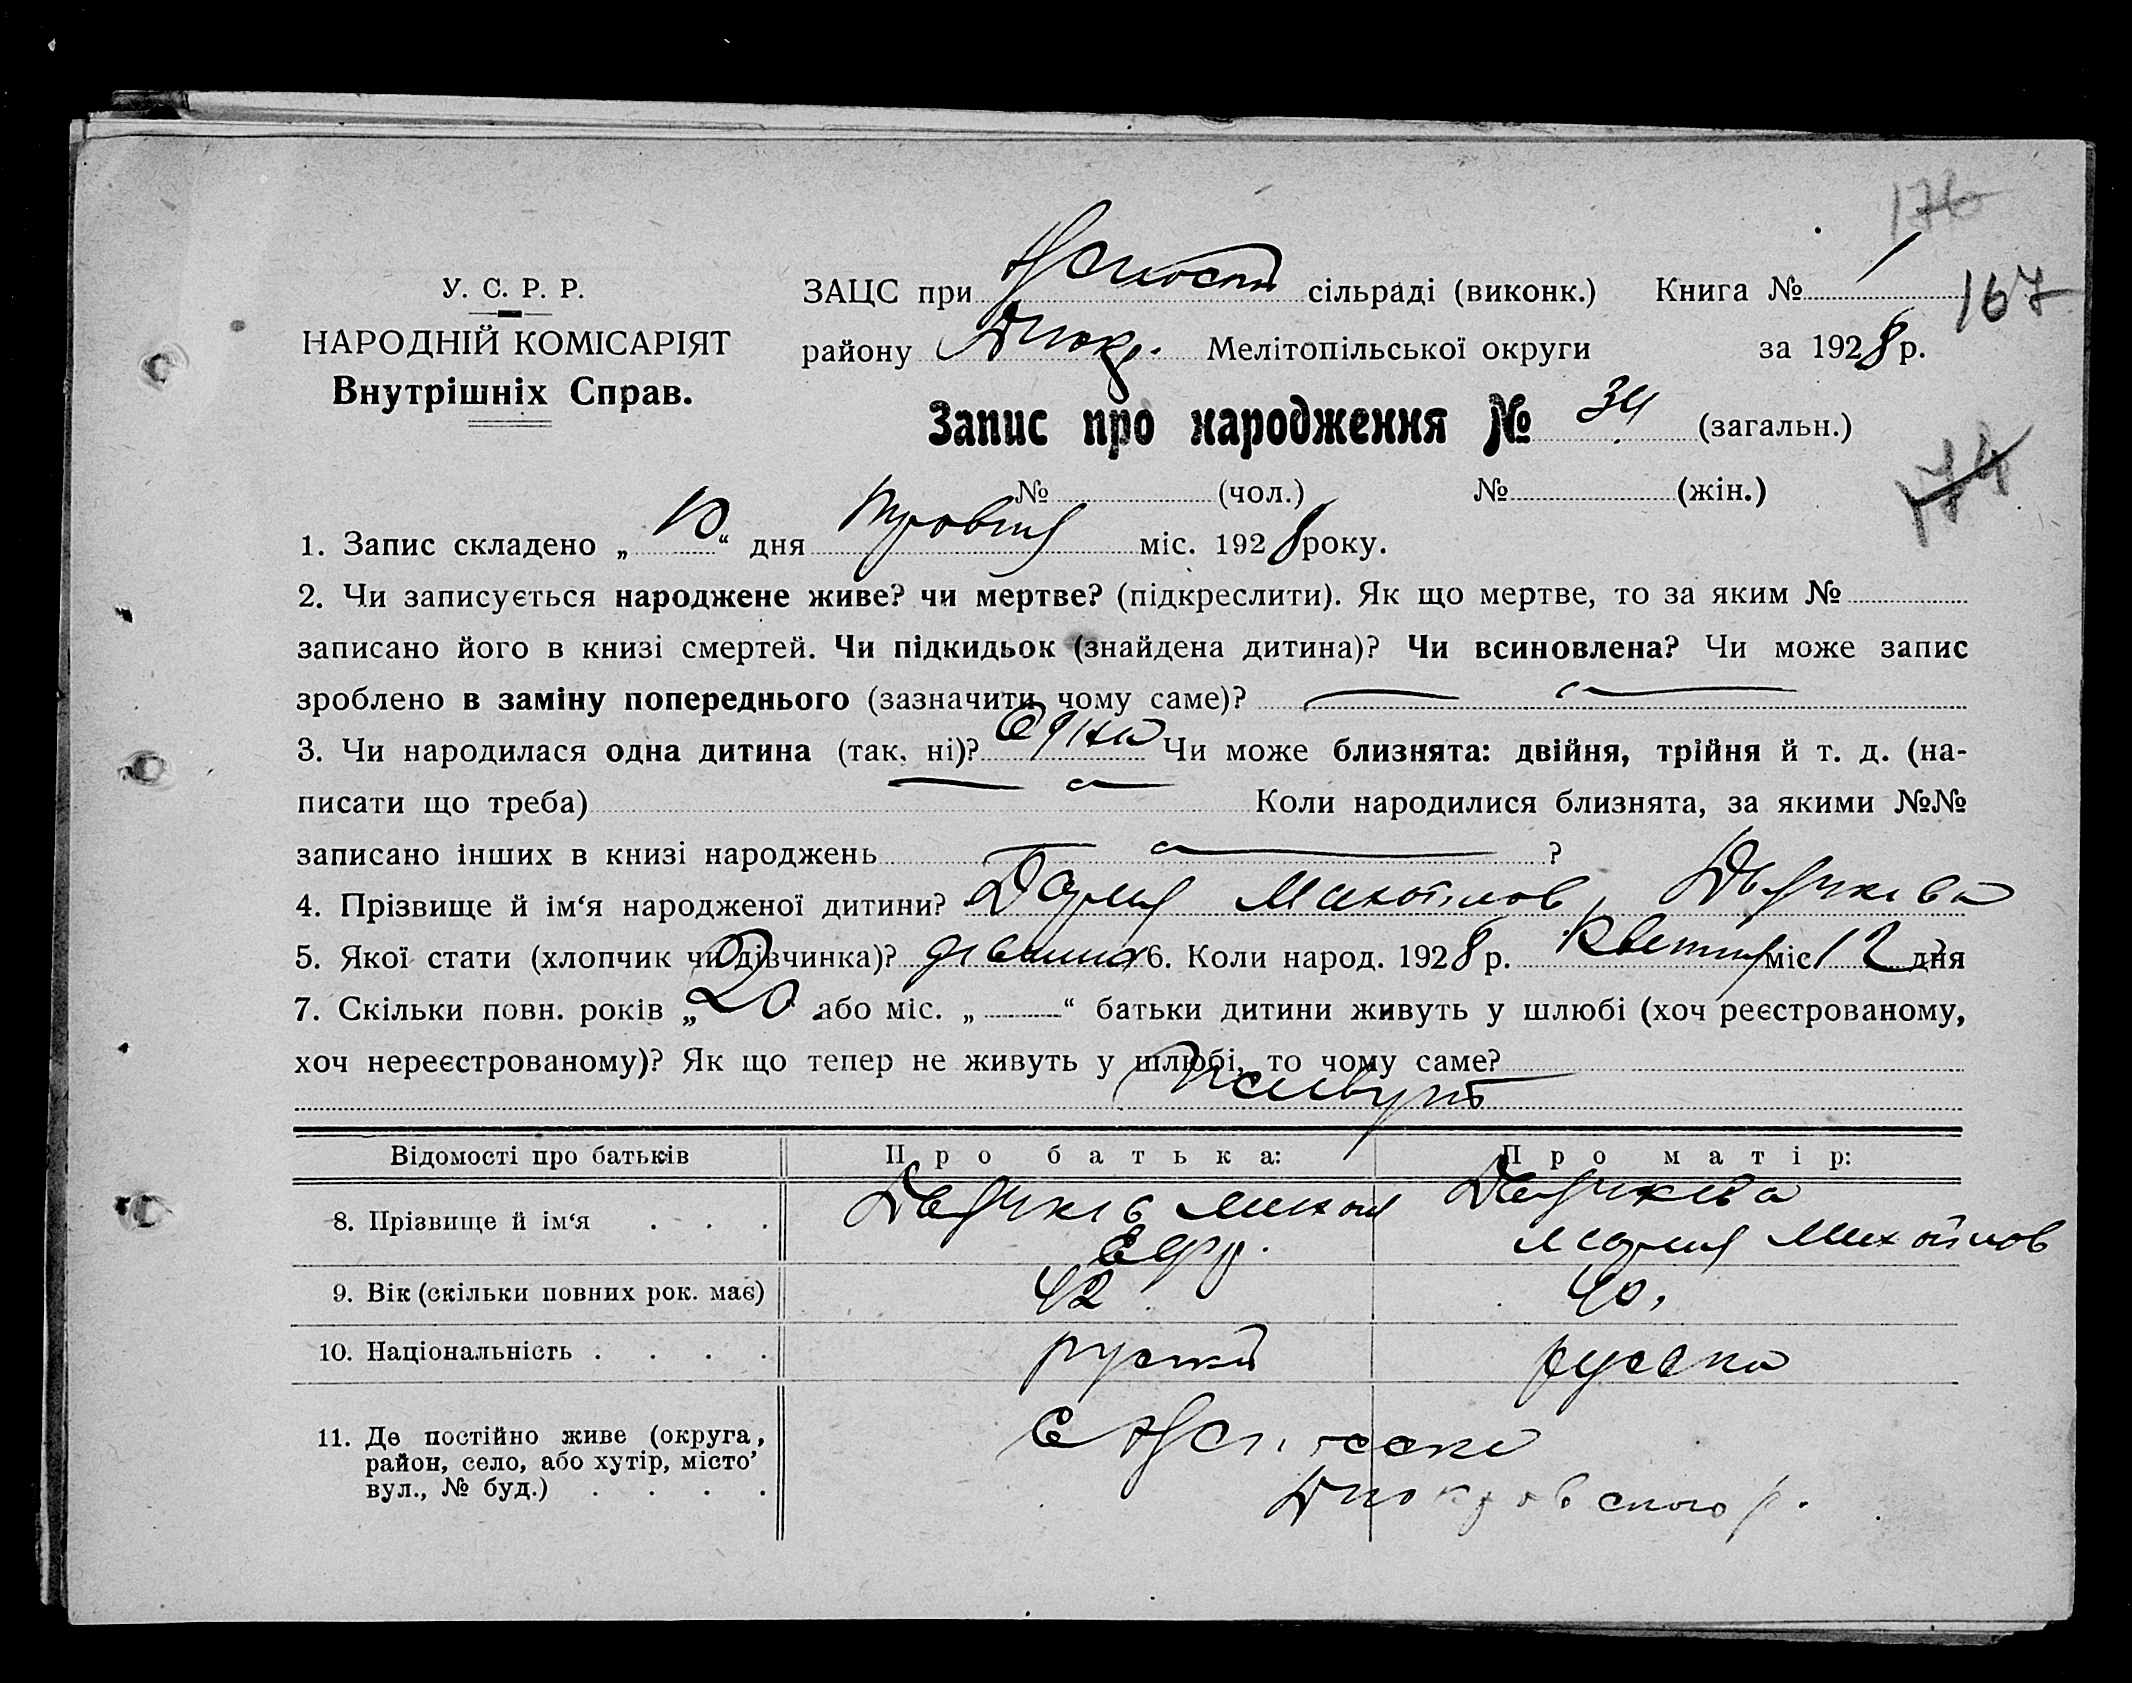 176
У. С. Р. Р.
НАРОДНІЙ КОМІСАРІЯТ
Внутрішніх Справ.
ЗАЦС при сільраді (виконк.) Книга № 1
167
району Мелітопільської округи за 1928 р.
Запис про народження № 34 (загальн.)
174
№ (чол.) № (жін.)
1. Запис складено „10“ дня травня міс. 1928 року.
2. Чи записується народжене живе? чи мертве? (підкреслити). Як що мертве, то за яким №
записано його в книзі смертей. Чи підкидьок (знайдена дитина)? Чи всиновлена? Чи може запис
зроблено в заміну попереднього (зазначити чому саме)?
3. Чи народилася одна дитина (так, ні)? одна Чи може близнята: двійня, трійня й т. д. (на-
писати що треба) Коли народилися близнята, за якими №№
записано інших в книзі народжень ?
4. Прізвище й ім‘я народженої дитини?
5. Якої стати (хлопчик чи дівчинка)? 6. Коли народ. 1928 р. квітня міс 12 дня
7. Скільки повн. років „20 або міс. „ “ батьки дитини живуть у шлюбі (хоч реєстрованому,
хоч нереєстрованому)? Як що тепер не живуть у шлюбі, то чому саме?
Відомості про батьків Про батька: Про матір:
8. Прізвище й ім‘я . . .
9. Вік (скільки повних рок. має) 42 40.
10. Національність . . . . руский русска
11. Де постійно живе (округа,
район, село, або хутір, місто’
вул., № буд.) . . . .